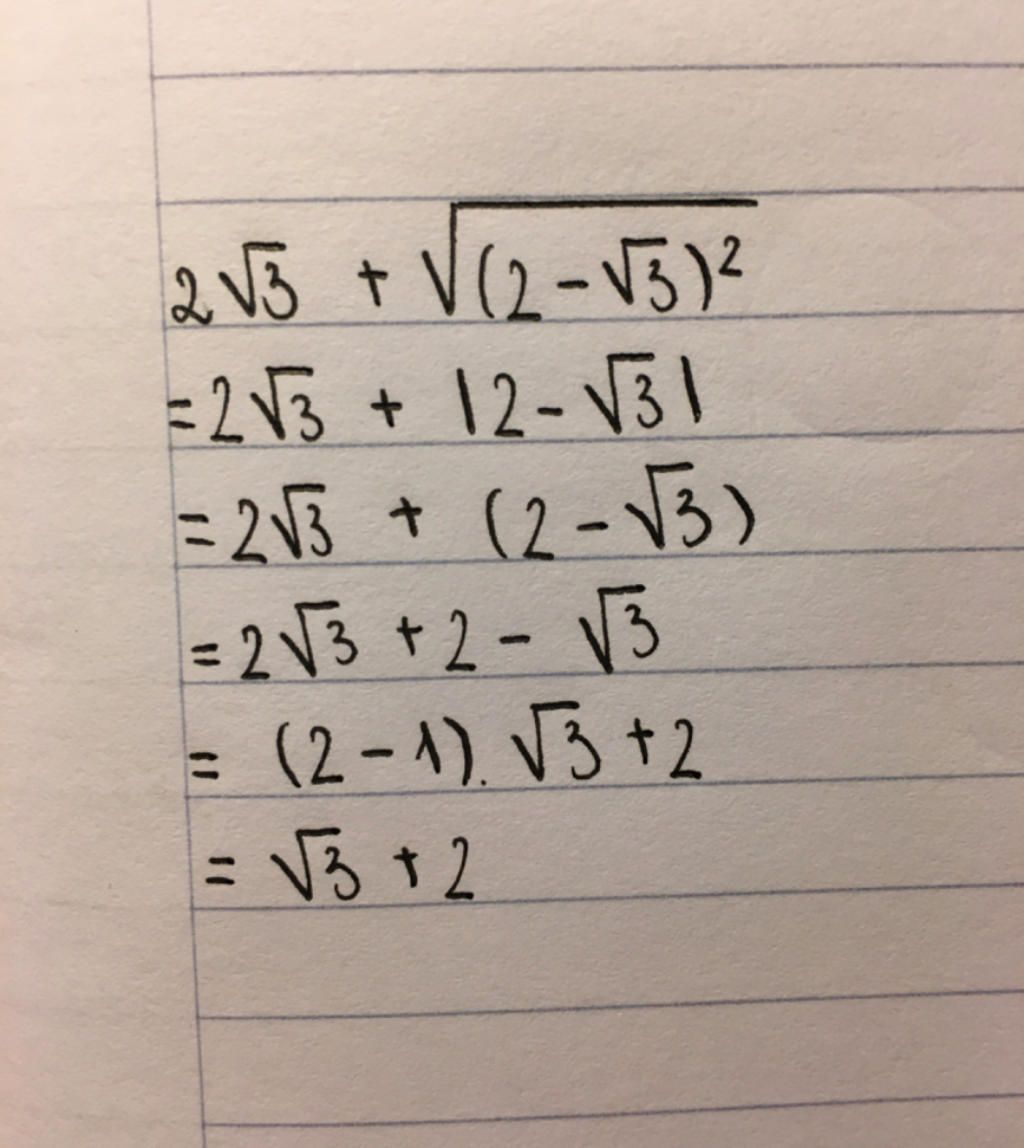 2√3 + √(2-√3)²
=2√3 + |2-√3|
=2√3 + (2-√3)
=2√3 +2- √3
= (2-1).√3+2
= √3 +2